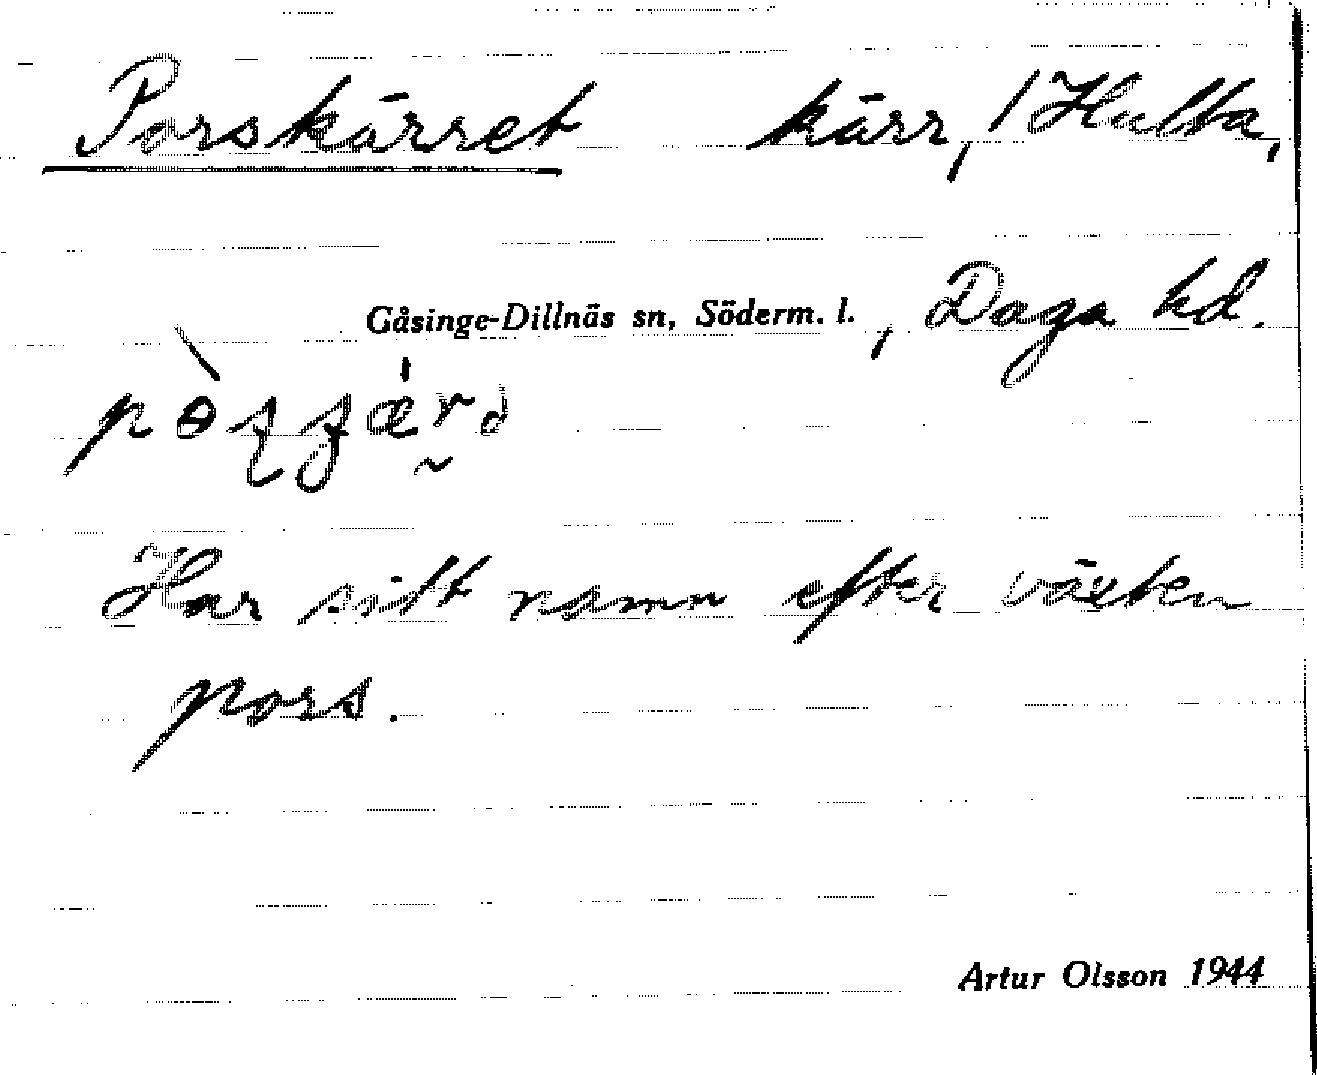 Porskärret kärr, / Hulta,
Gåsinge-Dillnäs sn, Söderm. l. , Daga hd.
Har sitt namn efter växten
pors.
Artur Olsson 1944